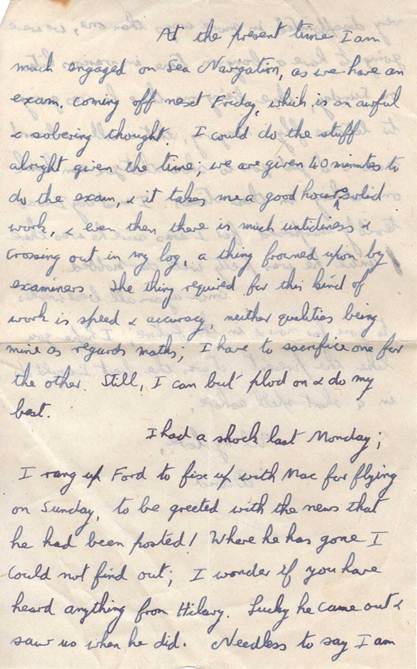 At the present time I am
much engaged on Sea Navigation, as we have an
exam. coming off next Friday, which is an awful
& sobering thought. I could do the stuff
alright given the time; we are given 40 minutes to
do the exam, & it takes me a good hour's solid
work, & even then there is much untidiness &
crossing out in my log, a thing frowned upon by
examiners. The thing required for this kind of
work is speed & accuracy, neither qualities being
mine as regards maths; I have to sacrifice one for
the other. Still, I can but plod on & do my
best.
I had a shock last Monday;
I rang up Ford to fix up with Mac for flying
on Sunday, to be greeted with the news that
he had been posted! Where he has gone I
could not find out; I wonder if you have
heard anything from Hilary. Lucky he came out &
saw us when he did. Needless to say I am